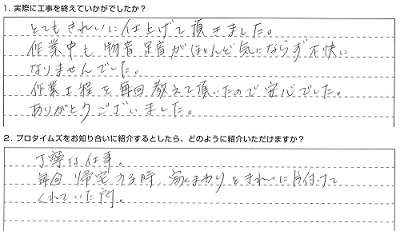 1. 実際に工事を終えていかがでしたか？
とてもきれいに仕上げて頂きました。
作業中も、物音、足音がほとんど気にならず不快に
なりませんでした。
作業工程を毎回教えて頂いたので安心でした。
ありがとうございました。
2. プロタイムズをお知り合いに紹介するとしたら、どのように紹介いただけますか？
丁寧な仕事。
毎回 帰宅する時 家のまわりをきれいに片付けて
くれていた所。